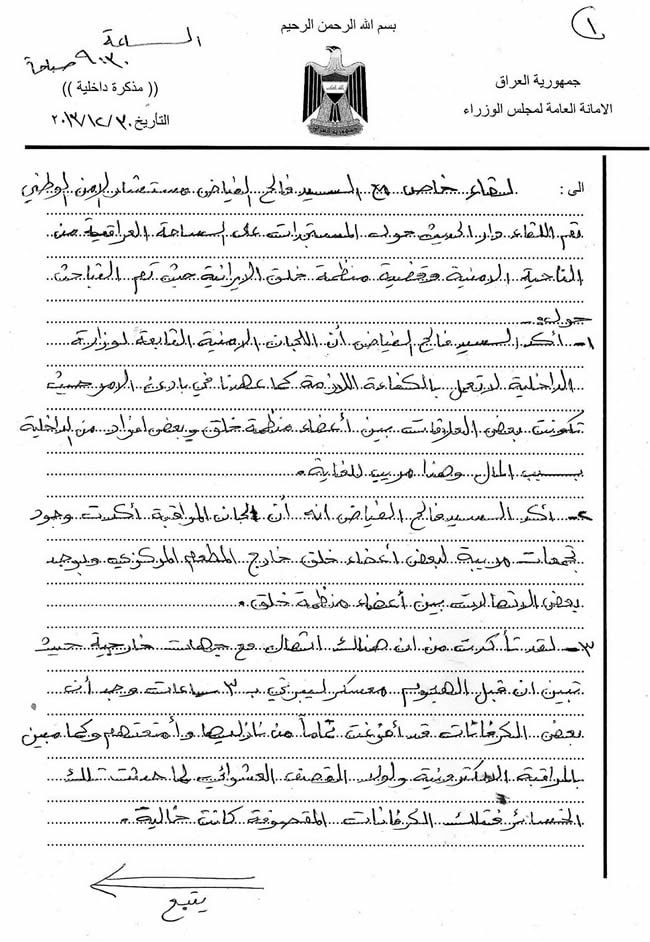 ١
بسم الله الرحمن الرحيم
الساعة
٩،٣٠ صباحا
(( مذكرة داخلية ))
جمهورية العراق
الامانة العامة لمجلس الوزراء
التأريخ
الى : لقاء خاص مع السيد فالح الفياض مستشار الامن الوطني
تم اللقاء دار الحديث حول المستجدات على الساحة العراقية من
الناحية الامنية وقضية منظمة خلق الايرانية حيث تم التباحث
حول :-
١- أكد السيد فالح الفياض أن اللجان الامنية التابعة لوزارة
الداخلية لا تعمل بالكفاءة اللازمة كما عهدنا في بادئ الامر حيث
تكونت بعض العلاقات بين أعضاء منظمة خلق وبعض افراد من الداخلية
بسبب المال وهذا مريب للغاية .
٢- اكد السيد فالح الفياض انه أن لجان المراقبة أكدت وجود
تجمعات مريبة لبعض أعضاء خلق خارج المطعم المركزي ويوجد
بعض الاتصالات بين أعضاء منظمة خلق .
٣- لقد تأكدت من ان هناك اتصال مع جهات خارجية حيث
تبين ان قبل الهجوم معسكر ليبرتي بـ ٣ ساعات وجد أن
بعض الكرفانات قد أفرغت تماماً من نازليها وأمتعتهم وكما مبين
بالمراقبة الالكترونية ولولا القصف العشوائي لما حدثت تلك
الخسائر فتلك الكرفانات المقصوفة كانت خالية .
يتبع